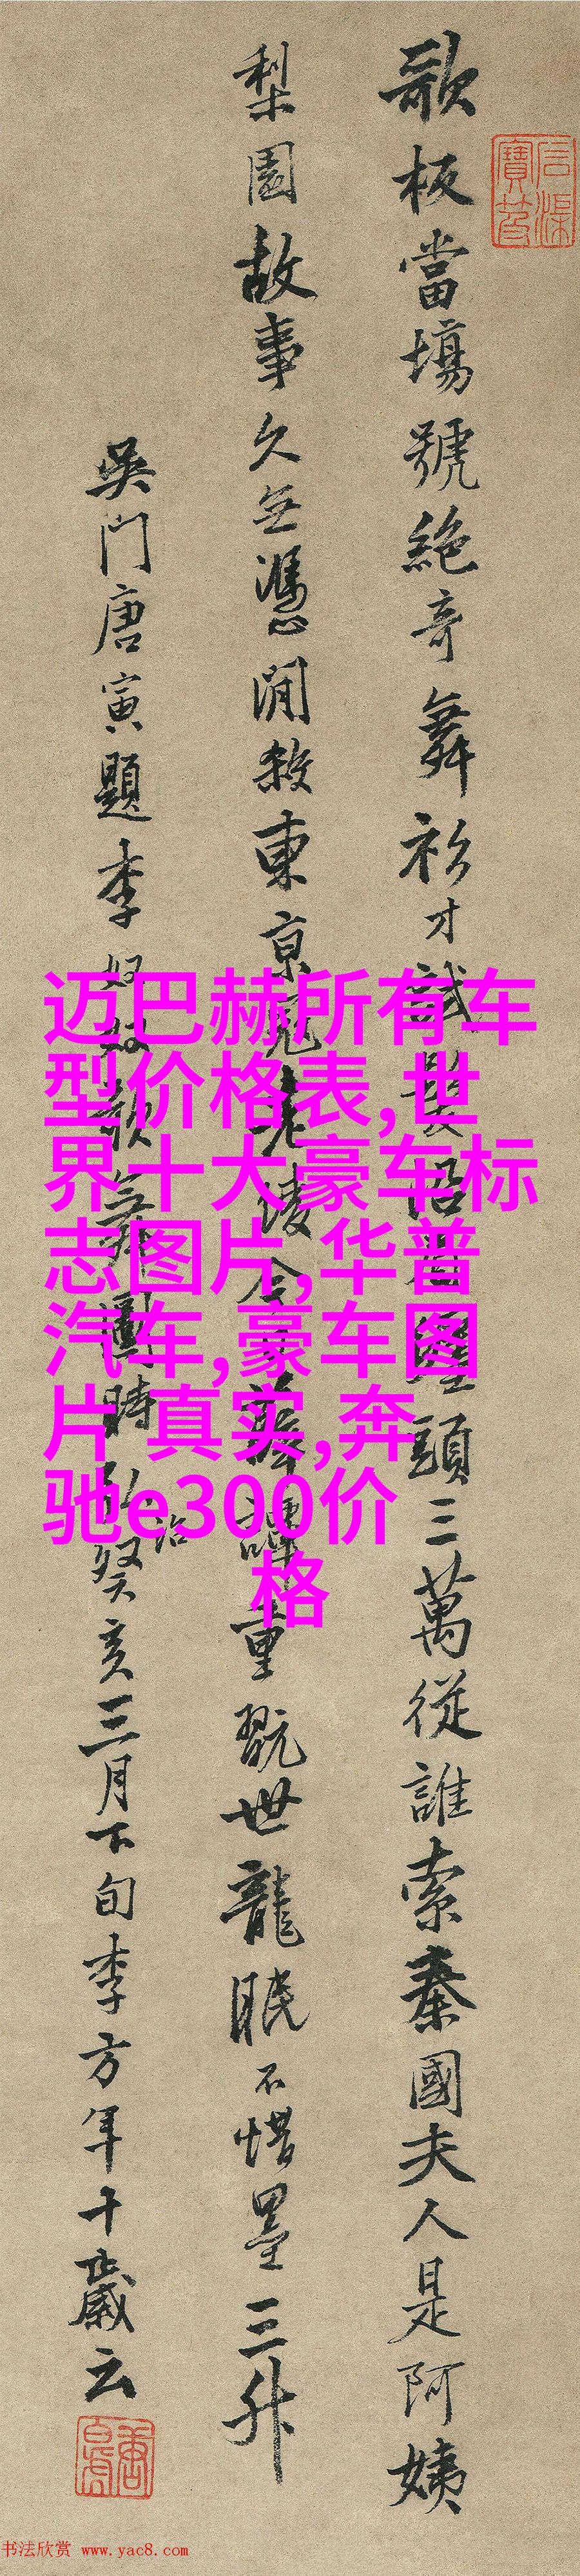 歌板當場號絕奇舞衫才試髮眉纏頭三萬從誰索秦國夫人是阿姨
梨園故事久無憑閒殺東京老陵今薛譚重翫世龍眠不惜墨三升
吳門唐寅題李奴奴歌舞圖時弘治癸亥三月下旬李方年十歲云
迈巴赫所有车
型价格表,世
界十大豪车标
志图片,华普
汽车,豪车图
片 真实,奔
驰e300价
格
书法欣赏 www.yac8.com